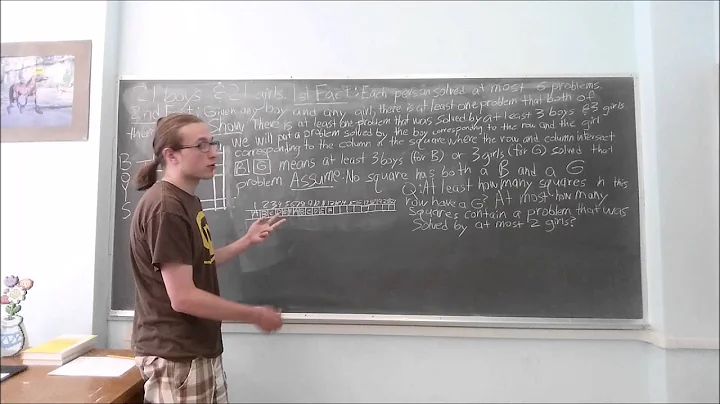 21 boys & 21 girls. 1st Fact: Each person solved at most 6 problems.
2nd Fact: Given any boy and any girl, there is at least one problem that both of
them Show There is at least one problem that was solved by at least 3 boys & 3 girls.
we will put a problem solved by the boy corresponding to the row and the girl
corresponding to the column in the square where the row and column intersect
B G means at least 3 boys (for B) or 3 girls (for G) solved that
problem Assume: No square has both a B and a G
Q: At least how many squares in this
row have a G? At most how many
squares contain a problem that was
solved by at most 2 girls?
B
O
Y
S
1 2 3 4 5 6 7 8 9 10 11 12 13 14 15 16 17 18 19 20 21
A